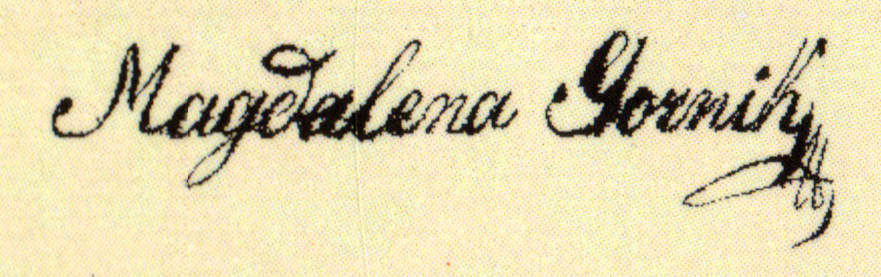 Magdalena Gornik